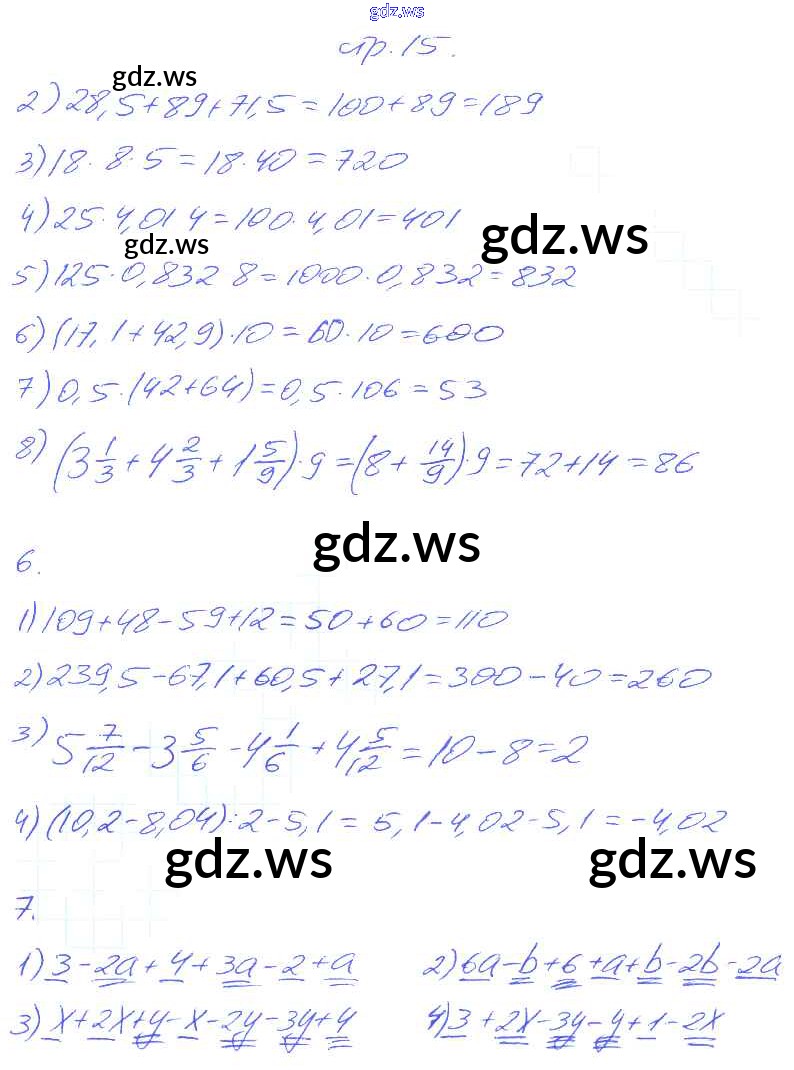 gdz.ws
стр. 15.
gdz.ws
2) 28,5+89+71,5=100+89=189
3) 18·8·5=18·40=720
4) 25·4,01 4=100·4,01=401
gdz.ws gdz.ws
5) 125·0,832 8=1000·0,832=832
6) (17,1+42,9)·10=60·10=600
7) 0,5·(42+64)=0,5·106=53
8) (3 1/3+4 2/3+1 5/9)·9=(8+14/9)·9=72+14=86
gdz.ws
6.
1) 109+48-59+12=50+60=110
2) 239,5-67,1+60,5+27,1=300-40=260
3) 5 7/12-3 5/6-4 1/6+4 5/12=10-8=2
4) (10,2-8,04):2-5,1=5,1-4,02-5,1=-4,02
gdz.ws gdz.ws
7.
1) 3-2a+4+3a-2+a 2) 6a-b+6+a+b-2b-2a
3) x+2x+y-x-2y-3y+4 4) 3+2x-3y-y+1-2x